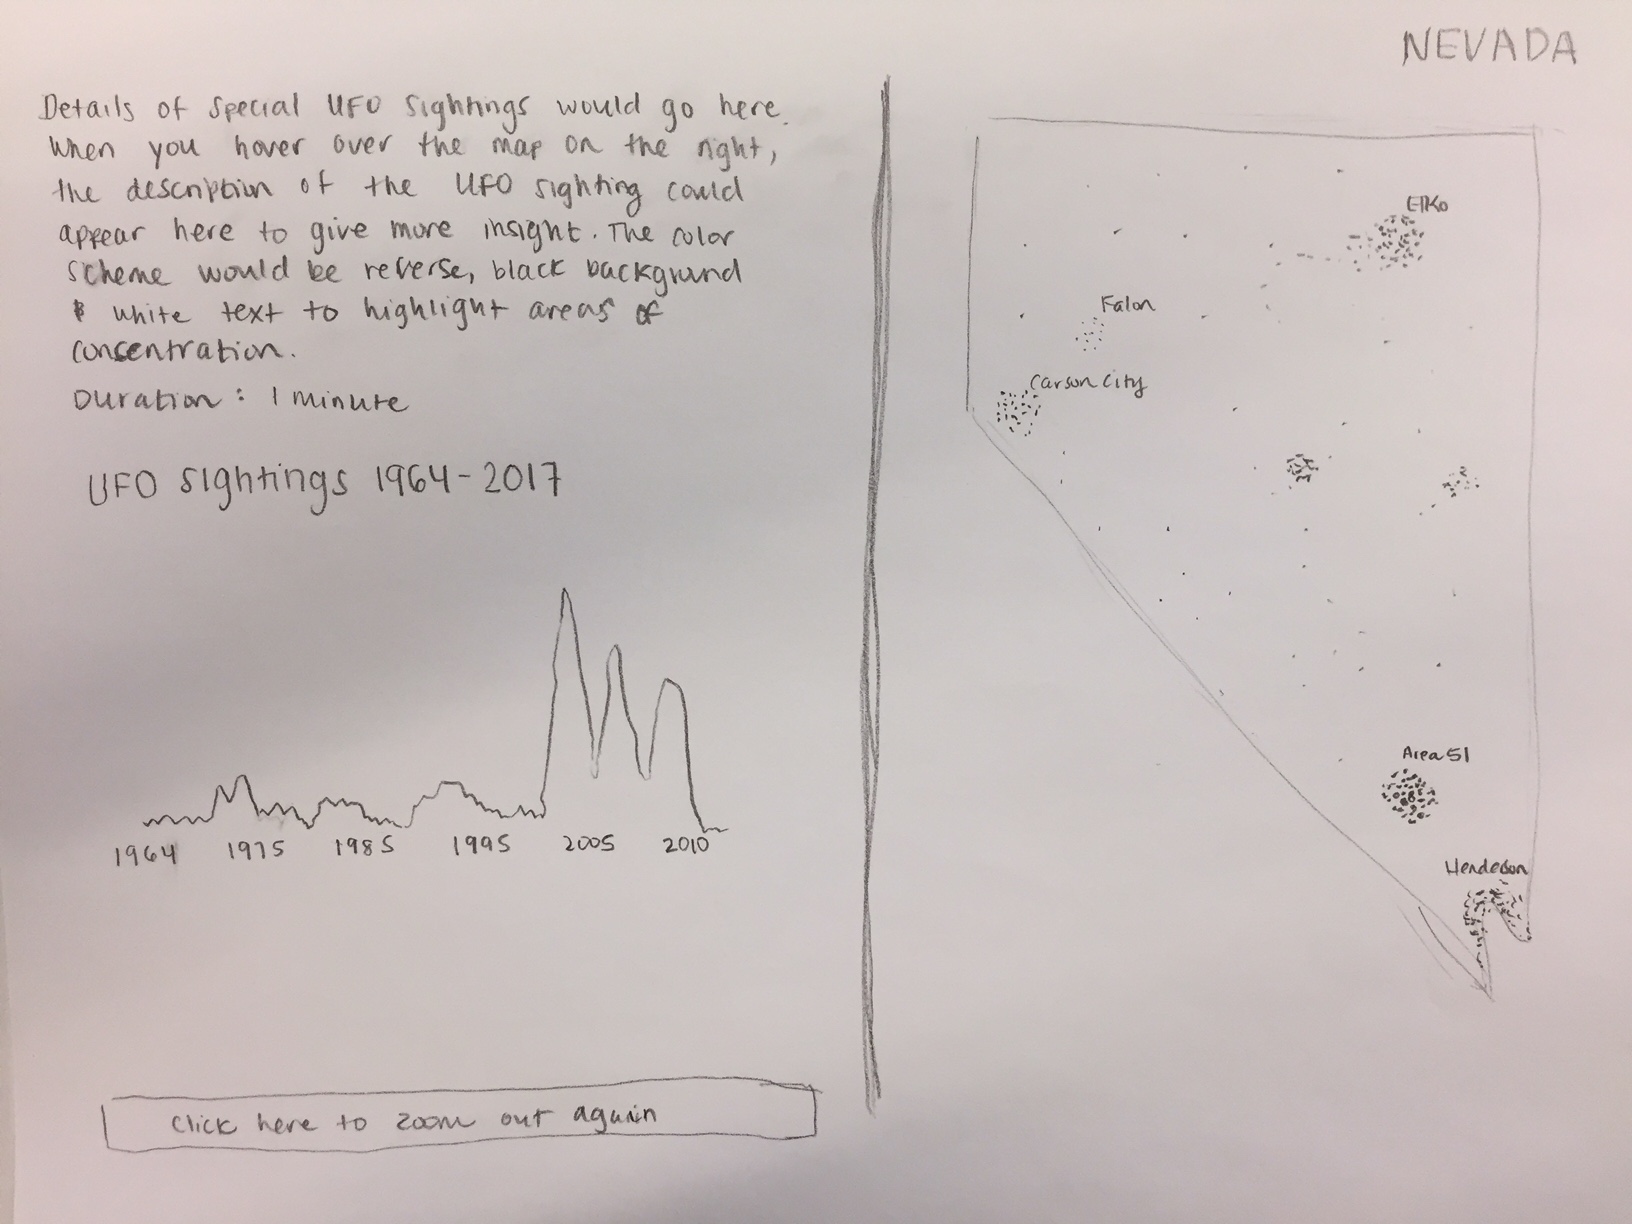 Details of special UFO sightings would go here.
When you hover over the map on the right,
the description of the UFO sighting could
appear here to give more insight. The color
scheme would be reverse, black background
& white text to highlight areas of
concentration.
Duration: 1 minute
UFO sightings 1964-2017
1964 1975 1985 1995 2005 2010
click here to zoom out again
NEVADA
Elko
Falon
Carson City
Area 51
Henderson